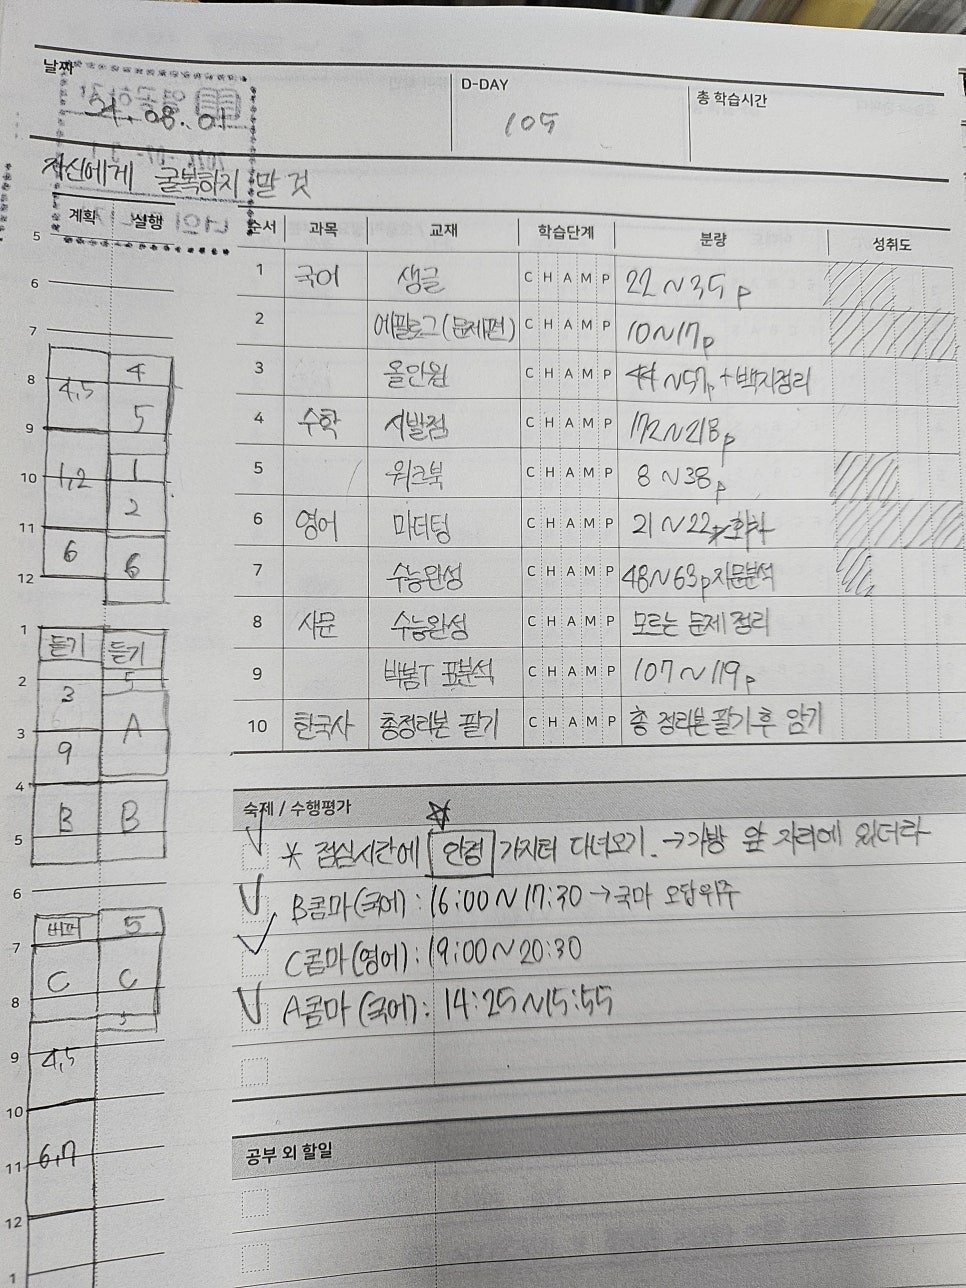 날짜
24. 08. 01
D-DAY
105
총 학습시간
자신에게 굴복하지 말 것
계획 실행
순서 과목 교재 학습단계 분량 성취도
1 국어 생글 C H A M P 22~35p
2 에필로그(문제편) C H A M P 10~17p
3 올인원 C H A M P 44~57p+백지정리
4 수학 시발점 C H A M P 172~218p
5 워크북 C H A M P 8~38p
6 영어 마더텅 C H A M P 21~22
7 수능완성 C H A M P 48~63p 지문분석
8 사문 수능완성 C H A M P 모르는 문제 정리
9 C H A M P 107~119p
10 한국사 총정리본 필기 C H A M P 총 정리본 필기 후 암기
5
6
7
4
8 4,5
5
9
1
10 1,2
2
11
6 6
12
1
듣기 듣기
2 5
3
3 A
9
4
B B
5
6
버퍼 5
7
C C
8
5
9 4,5
10
11 6,7
12
1
숙제 / 수행평가
* 점심시간에 안경 가지러 다녀오기. →가방 앞 자리에 있더라
B콤마(국어) : 16:00~17:30 →국마 오답위주
C콤마(영어) : 19:00~20:30
A콤마(국어) : 14:25~15:55
공부 외 할일